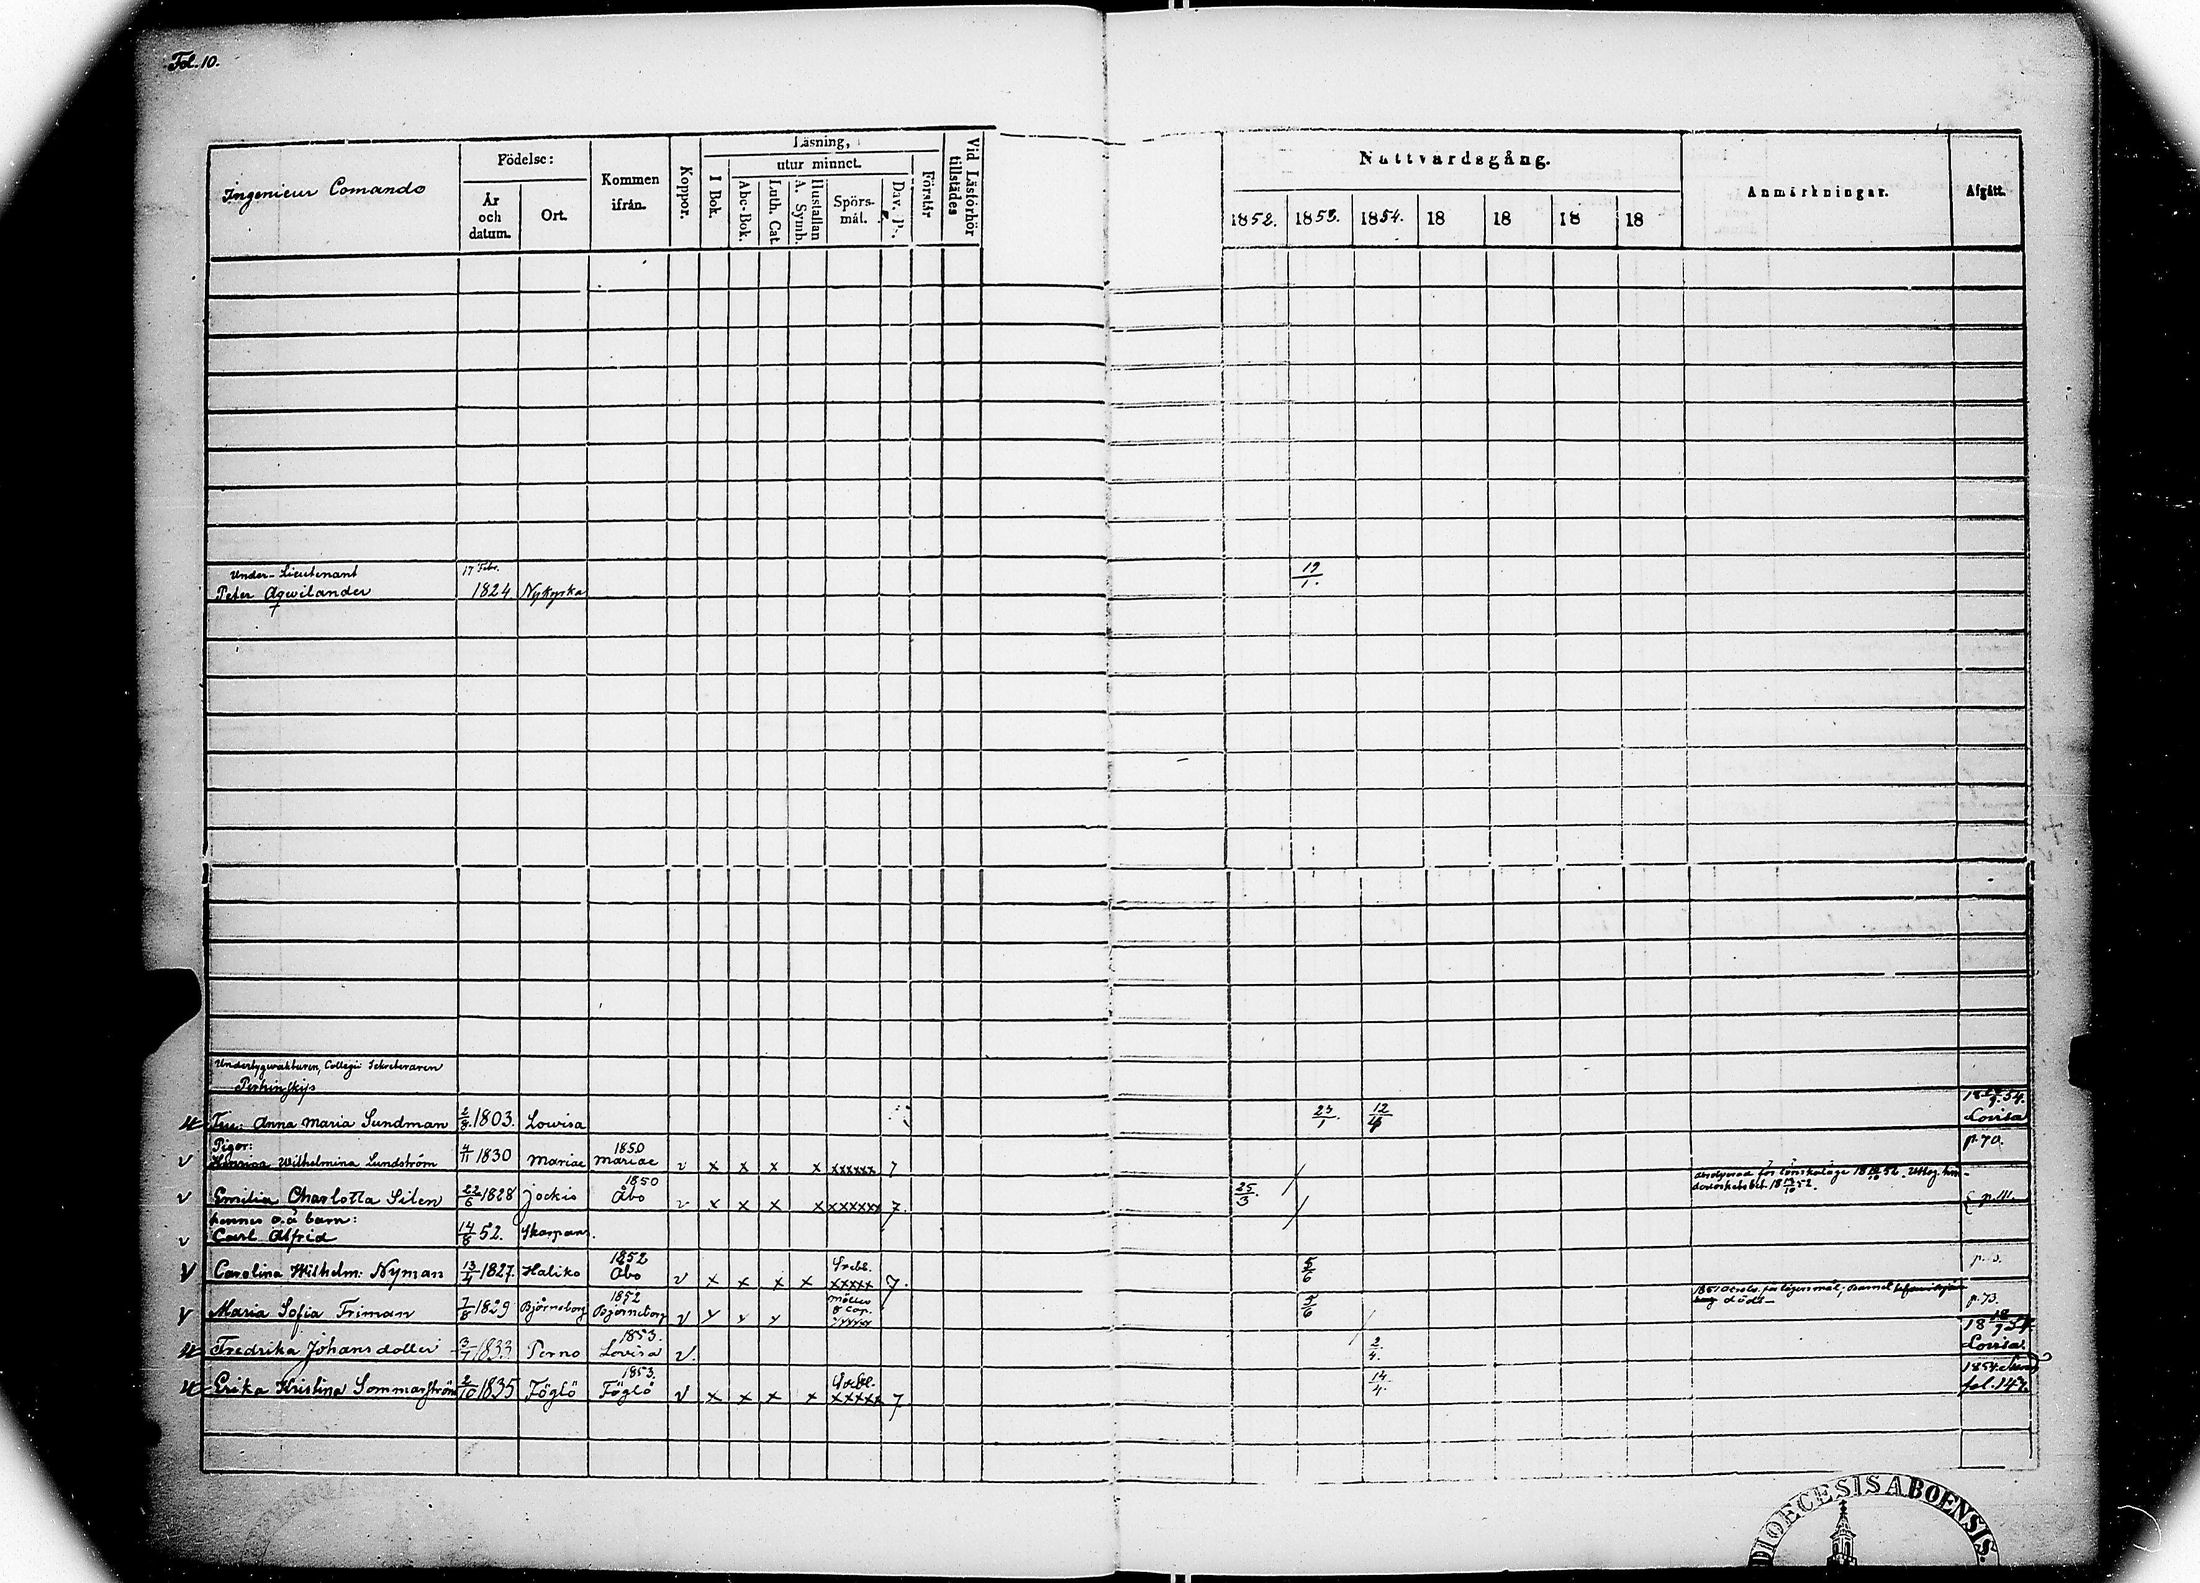 Fol. 10.
Ingenieur Comando
Födelse:
År och datum.
Ort.
Kommen ifrån.
Koppor.
Läsning,
utur minnet.
I Bok.
Abc-Bok.
Luth. Cat.
Hustaflan A. Symb.
Spörsmål.
Dav. Ps.
Förstår
Vid Läsförhör tillstädes
Nattvardsgång.
1852. 1853. 1854. 18 18 18 18
Anmärkningar.
Afgått.
Under-Lieutenant 17 Febr. 19/1.
Peter Aqwilander 1824 Nykyrka
Undertygvaktaren, Collegii Sekreteraren
Fru: Anna Maria Sundman 2/8. 1803. Lowisa 23/1. 12/4 54. Lovisa
Pigor: 1850 p. 70.
Wilhelmina Lundström 4/11 1830 Mariae Mariae v x x x x xxxxxx 7
Emilia Charlotta Silen 22/6 1828 Jockis 1850 Åbo v x x x x xxxxxx 7. 25/3. p. 111.
hennes o.ä barn:
Carl Alfrid 14/8 52. Skarpans.
Carolina Wilhelm: Nyman 13/4 1827. Haliko 1852 Åbo v x x x x Svebil. xxxxx 7. 5/6
Maria Sofia Friman 7/8 1829 Björneborg 1852 Björneborg v 5/6 döds- p. 73.
Fredrika Johansdotter 3/7 1833 Perno 1853. Lovisa v. 2/4. Lovisa.
Erika Kristina Sommarström 2/10 1835 Föglö 1853. Föglö v x x x x Svebil. xxxxx 7 14/4. 1854. Sund fol. 147.
DIOECESIS ABOENSIS.